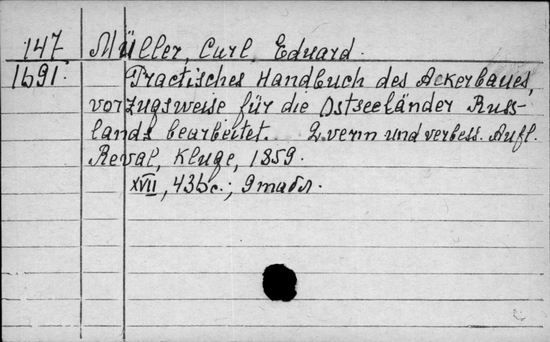 147 Müller, Carl Eduard.
1691. Practisches Handbuch des Ackerbaues,
vorzugsweise für die Ostseeländer Russ-
lands bearbeitet. 2. verm und verbess. Aufl.
Reval, Kluge, 1859.
XVII, 436 с.; 9 табл.